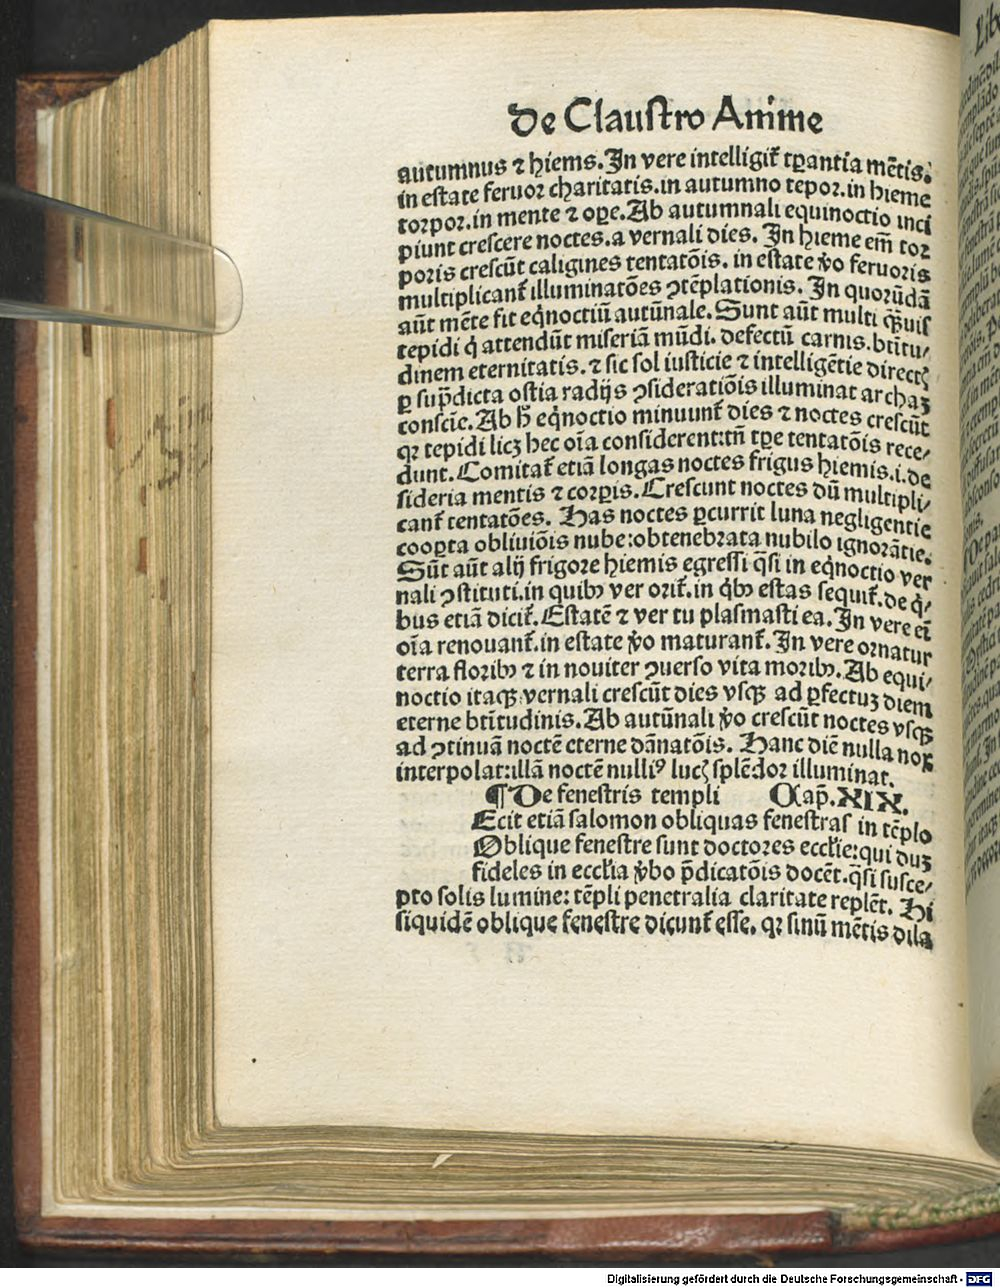 De Claustro Anime
autumnus ⁊ hiems. In vere intelligit᷑ tꝑantia mẽtis.
in estate feruor charitatis. in autumno tepor. in hieme
torpor. in mente ⁊ oꝑe. Ab autumnali equinoctio inci
piunt crescere noctes. a vernali dies. In hieme em̃ tor
poris crescũt caligines tentatõis. in estate ṽo feruoris
multiplicant᷑ illuminatões ꝯtẽplationis. In quorũdã
aũt mẽte fit eq̃noctiũ autũnale. Sunt aũt multi q̃uis
tepidi q̇ attendũt miseriã mũdi. defectũ carnis. btĩtu/
dinem eternitatis. ⁊ sic sol iusticie ⁊ intelligẽtie directꝭ
ꝑ sup̃dicta ostia radijs ꝯsideratiõis illuminat archaꝫ
conscĩe. Ab h̃ eq̃noctio minuunt᷑ dies ⁊ noctes crescũt
qꝛ tepidi licꝫ hec oĩa considerent: tñ tꝑe tentatõis rece/
dunt. Comitat᷑ etiã longas noctes frigus hiemis. i. de
sideria mentis ⁊ corꝑis. Crescunt noctes dũ multipli/
cant᷑ tentatões. Has noctes ꝑcurrit luna negligentie
cooꝑta obliuiõis nube: obtenebrata nubilo ignorãtie.
Sũt aũt alij frigore hiemis egressi q̃si in eq̃noctio ver
nali ꝯstituti. in quibꝰ ver orit᷑. in q̇bꝰ estas sequit᷑. de q̇/
bus etiã dicit᷑. Estatẽ ⁊ ver tu plasmasti ea. In vere eĩ
oĩa renouant᷑. in estate ṽo maturant᷑. In vere ornatur
terra floribꝰ ⁊ in nouiter ꝯuerso vita moribꝰ. Ab equi/
noctio itaqꝫ vernali crescũt dies vsqꝫ ad ꝑfectuꝫ diem
eterne btĩtudinis. Ab autũnali ṽo crescũt noctes vsqꝫ
ad ꝯtinuã noctẽ eterne dãnatõis. Hanc diẽ nulla nox
interpolat: illã noctẽ nulliꝰ lucꝭ splẽdor illuminat.
¶ De fenestris templi Cap̃. XIX.
Ecit etiã salomon obliquas fenestras in tẽplo
Oblique fenestre sunt doctores eccl̃ie: qui duꝫ
fideles in eccl̃ia ṽbo p̃dicatõis docẽt. q̃si susce/
pto solis lumine: tẽpli penetralia claritate replẽt. Hi
siquidẽ oblique fenestre dicunt᷑ esse. qꝛ sinũ mẽtis dila
Digitalisierung gefördert durch die Deutsche Forschungsgemeinschaft - DFG